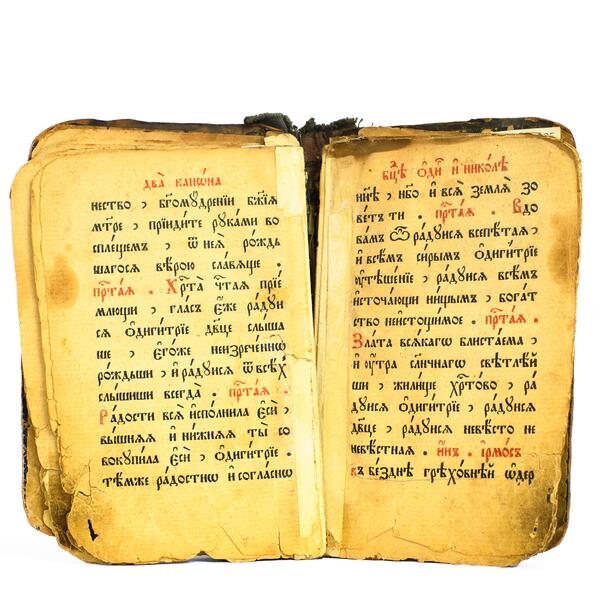 два̀ канѡ́на
нество , бг҃омꙋ́дрении бж҃їѧ
мт҃ре , прїиди́те рꙋка́ми во
спле́щемъ , ѿ неѧ̀ ро́ждь
шагосѧ вѣ́рою сла́вѧще .
прⷭ҇та́ѧ . Хрⷭ҇та̀ чⷭ҇таѧ прїе́
млющи , гла́съ є҆́же ра́дꙋи
сѧ ѻ҆диги́трїе дв҃це слы́ша
ше , є҆го́же неизрече́ннѡ
ро́ждьши , и҆ ра́дꙋисѧ ѿ всѣ́х
слы́шиши всегда̀ . прⷭ҇та́ѧ .
Ра́дости всѧ̀ и҆спо́лнила є҆сѝ ,
вы́шнѧѧ и҆ ни́жнѧѧ ты̀ со
вокꙋпи́ла є҆сѝ , ѻ҆диги́трїе .
тѣ́мже ра́достнѡ и҆ согла́снѡ
бц҃ѣ ѻ҆ди҃г и҆ нико́лѣ
нн҃ѣ , нб҃о и҆ всѧ̀ землѧ̀ зо
ве́тъ ти . прⷭ҇та́ѧ . Вдо
ва́мъ ѿ ра́дꙋисѧ всепѣ́таѧ ,
и҆ всѣ́мъ си́рымъ ѻ҆диги́трїе
ᲂу҆тѣше́нїе , ра́дꙋисѧ всѣ́мъ
и҆сточа́ющи ни́щымъ , бога́т
ство неи҆стощи́мое . прⷭ҇та́ѧ .
Зла́та всѧ́кагѡ блиста́ема ,
и҆ ᲂу҆́тра сл҃нчнагѡ свѣтлѣ́й
ши , жили́ще хрⷭ҇то́во , ра́
дꙋисѧ ѻ҆диги́трїе , ра́дꙋисѧ
дв҃це , ра́дꙋисѧ невѣ́сто не
невѣ́стнаѧ . и҆́нъ . і҆рмо́съ
въ бе́зднѣ грѣхо́внѣй ѡ҆дер